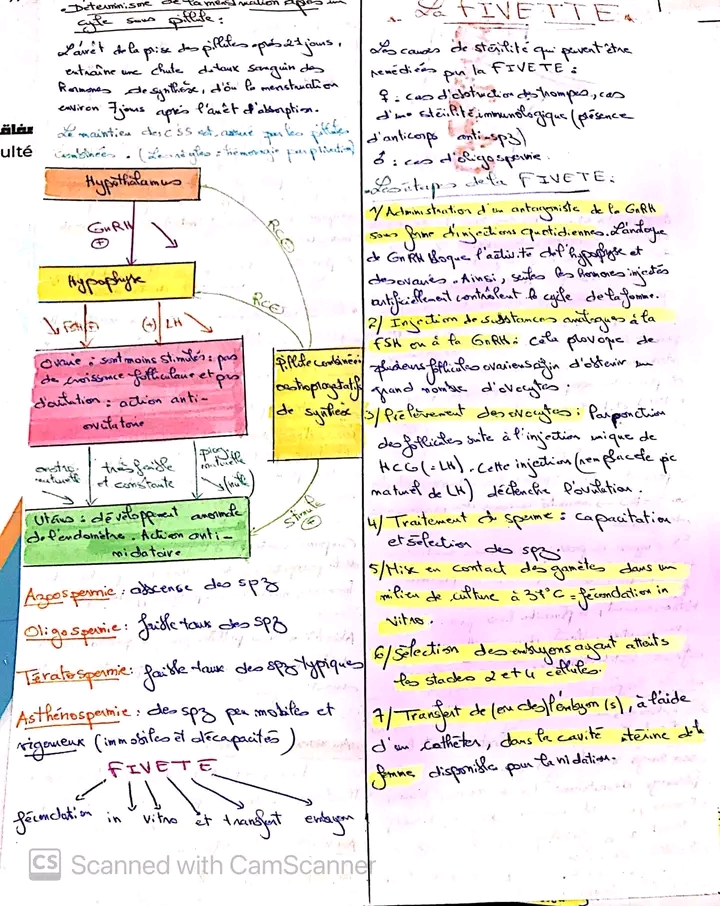 - Déterminisme de la menstruation après un
cycle sous pilule :
L'arrêt de la prise des pilules après 21 jours,
entraîne une chute du taux sanguin des
Hormones de synthèse, d'où la menstruation
environ 7 jours après l'arrêt d'absorption.
Le maintien des CSS est assuré par les pilules
combinées. (Les règles = hémorragie par privation)
ulté
Hypothalamus
GnRH
(+)
RC(-)
Hypophyse
RC(-)
FSH(+)
(+) LH
Ovaire : sont moins stimulés : pas
de croissance folliculaire et pas
d'ovulation : action anti-
ovulatoire
pilule combinée
oestroprogestatif
de synthèse
très faible
et constante
(nulle)
Stimule
(+)
Utérus : développement anormale
de l'endomètre. Action anti-
nidatoire
Azospermie : abscense des spz
Oligospermie : faible taux des spz
Tératospermie : faible taux des spz typiques
Asthénospermie : des spz peu mobiles et
vigoureux (immobiles et décapacités)
FIVETE
fécondation in vitro et transfert embryon
La FIVETTE.
Les causes de stérilité qui peuvent être
remédiées par la FIVETE :
♀ : cas d'obstruction des trompes, cas
d'une stérilité immunologique (présence
d'anticorps anti-spz)
♂ : cas d'oligospermie.
- Les étapes de la FIVETE :
1/ Administration d'un antagoniste de la GnRH
sous forme d'injections quotidiennes. L'analogue
de GnRH bloque l'activité de l'hypophyse et
des ovaires. Ainsi, seules les hormones injectés
artificiellement contrôlent le cycle de la femme.
2/ Injection de substances analogues à la
FSH ou à la GnRH : cela provoque de
plusieurs follicules ovariens afin d'obtenir un
grand nombre d'ovocytes.
3/ Prélèvement des ovocytes : Par ponction
des follicules suite à l'injection unique de
HCG (=LH). Cette injection (remplace le pic
naturel de LH) déclenche l'ovulation.
4/ Traitement du sperme : capacitation
et sélection des spz.
5/ Mise en contact des gamètes dans un
milieu de culture à 37°C = fécondation in
vitro.
6/ Sélection des embryons ayant atteints
les stades 2 et 4 cellules.
7/ Transfert de (ou des) l'embryon (s), à l'aide
d'un cathéter, dans la cavité utérine de la
femme disponible pour la nidation.
CS Scanned with CamScanner